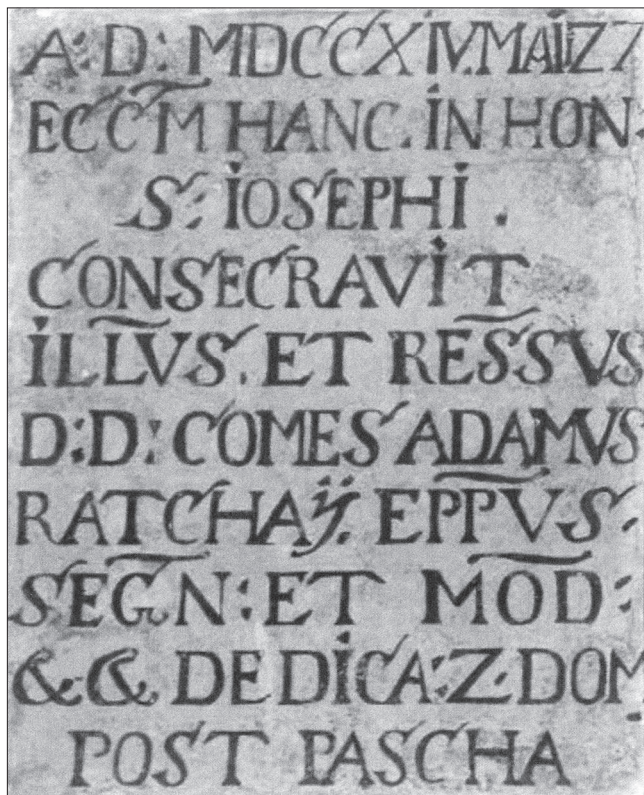 A: D: MDCCXIV. MAII Z7
ECC̄M HANC. IN HON.
S: IOSEPHI.
CONSECRAVIT
ILLV̄S. ET RESS̄VS
D: D: COMES ADAMVS
RATCHAÿ. EPP̄VS:
SEḠN: ET MŌD:
&& DEDICA: Z: DOM
POST PASCHA